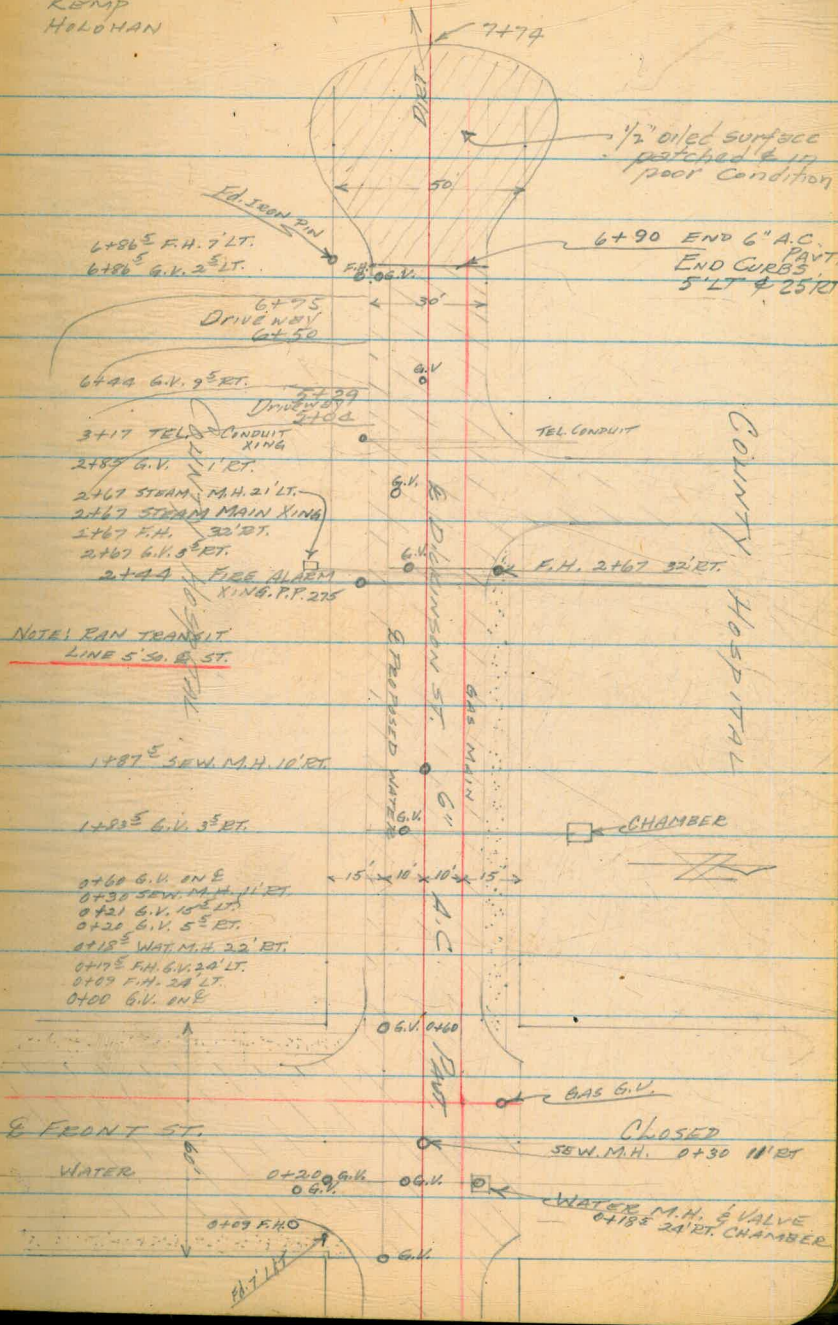 KEMP
HOLOHAN
7+74
DIRT
1/2" oiled surface
patched & in
poor Condition
50'
Fd. IRON PIN
6+86⁵ F.H. 7' LT.
6+86⁵ G.V. 2⁵ LT.
F.H.
G.V.
6+90 END 6" A.C.
PAVT.
END CURBS
5' LT & 25' RT
6+75
Driveway
6+50
30'
6+44 G.V. 9⁵ RT.
G.V
5+29
Driveway
5+04
3+17 TEL. CONDUIT
XING
TEL. CONDUIT
2+85 G.V. 1' RT.
2+67 STEAM M.H. 21' LT.
2+67 STEAM MAIN XING
2+67 F.H. 32' RT.
2+67 G.V. 3⁵ RT.
2+44 FIRE ALARM
XING. P.P. 275
G.V.
G.V.
F.H. 2+67 32' RT.
COUNTY HOSPITAL
COUNTY HOSPITAL
NOTE: RAN TRANSIT
LINE 5' SO. ℄ ST.
℄ DICKINSON ST.
6" A.C. PAVT.
℄ PROPOSED WATER
GAS MAIN
1+87⁵ SEW. M.H. 10' RT.
1+83⁵ G.V. 3⁵ RT.
G.V.
CHAMBER
15' 10' 10' 15'
0+60 G.V. ON ℄
0+30 SEW. M.H. 11' RT.
0+21 G.V. 15⁵ LT.
0+20 G.V. 5⁵ RT.
0+18⁵ WAT. M.H. 22' RT.
0+17⁵ F.H. G.V. 24' LT.
0+09 F.H. 24' LT.
0+00 G.V. ON ℄
G.V. 0+60
GAS G.V.
℄ FRONT ST.
60'
CLOSED
SEW. M.H. 0+30 11' RT
WATER
0+20 G.V.
G.V.
G.V.
WATER M.H. & VALVE
0+18⁵ 24' RT. CHAMBER
0+09 F.H.
G.V.